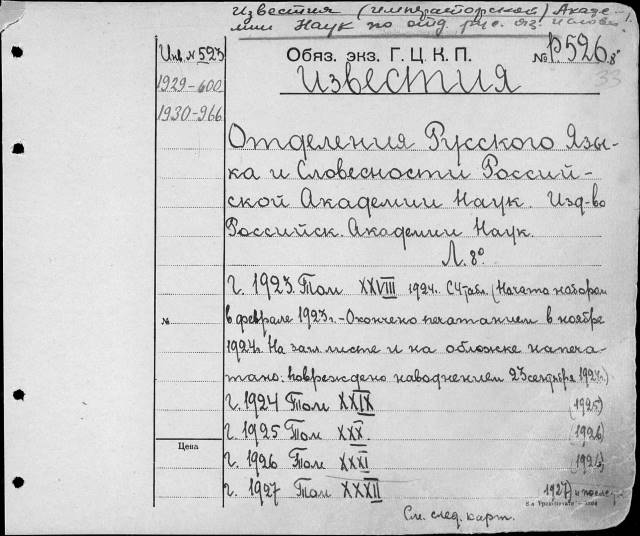 Известия (императорской) Акаде-
мии Наук по отд. рус. яз. и слов.
Инв. N 523
Обяз. экз. Г. Ц. К. П.
№ Р526.8°
33
1929-600
Известия
1930-966
Отделения Русского Язы-
ка и Словесности Россий-
ской Академии Наук. Изд-во
Российск. Академии Наук.
Л. 8°
Г. 1923. Том XXVIII 1924. С 4 табл. (Начато набором
№ в феврале 1923 г. - Окончено печатанием в ноябре
1924 г. На загл. листе и на обложке напеча-
тано: повреждено наводнением 23 сентября 1924 г.)
Г. 1924 Том XXIX (1925)
Г. 1925 Том XXX. (1926)
Цена
Г. 1926 Том XXXI (1926)
Г. 1927 Том XXXII 1927) и послед.
См. след. карт.